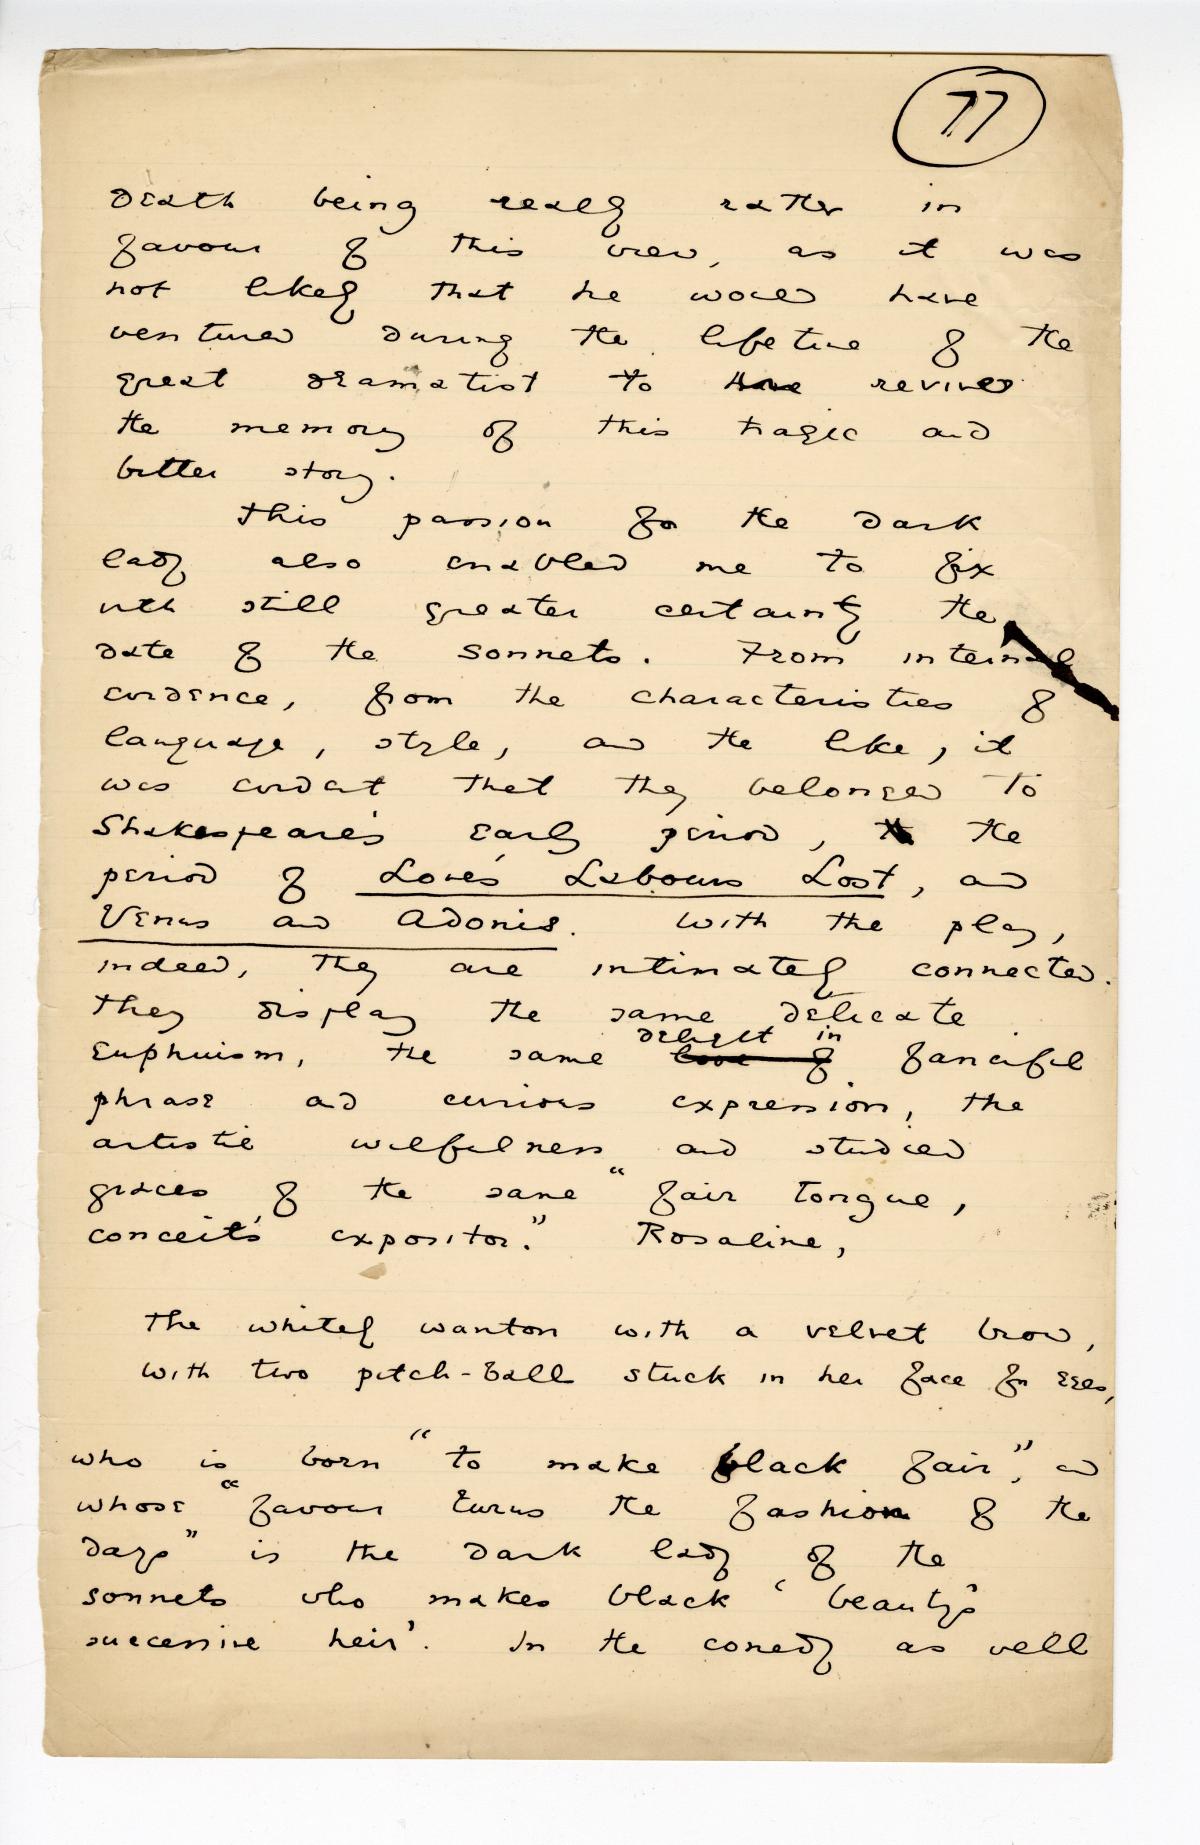 77
death being really rather in
favour of this view, as it was
not likely that he would have
ventured during the lifetime of the
great dramatist to have revived
the memory of this tragic and
bitter story.
This passion for the dark
lady also enabled me to fix
with still greater certainty the
date of the sonnets. From internal
evidence, from the characteristics of
language, style, and the like, it
was evident that they belonged to
Shakespeare's early period, the
period of Love's Labours Lost, and
Venus and Adonis. With the play,
indeed, they are intimately connected.
They display the same delicate
delight in
Euphuism, the same love of fanciful
phrase and curious expression, the
artistic wilfulness and studied
graces of the same "fair tongue,
conceit's expositor." Rosaline,
The whitely wanton with a velvet brow,
With two pitch-ball stuck in her face for eyes,
who is born "to make black fair", and
whose "favour turns the fashion of the
days" is the dark lady of the
sonnets who makes black 'beauty's
successive heir'. In the comedy as well